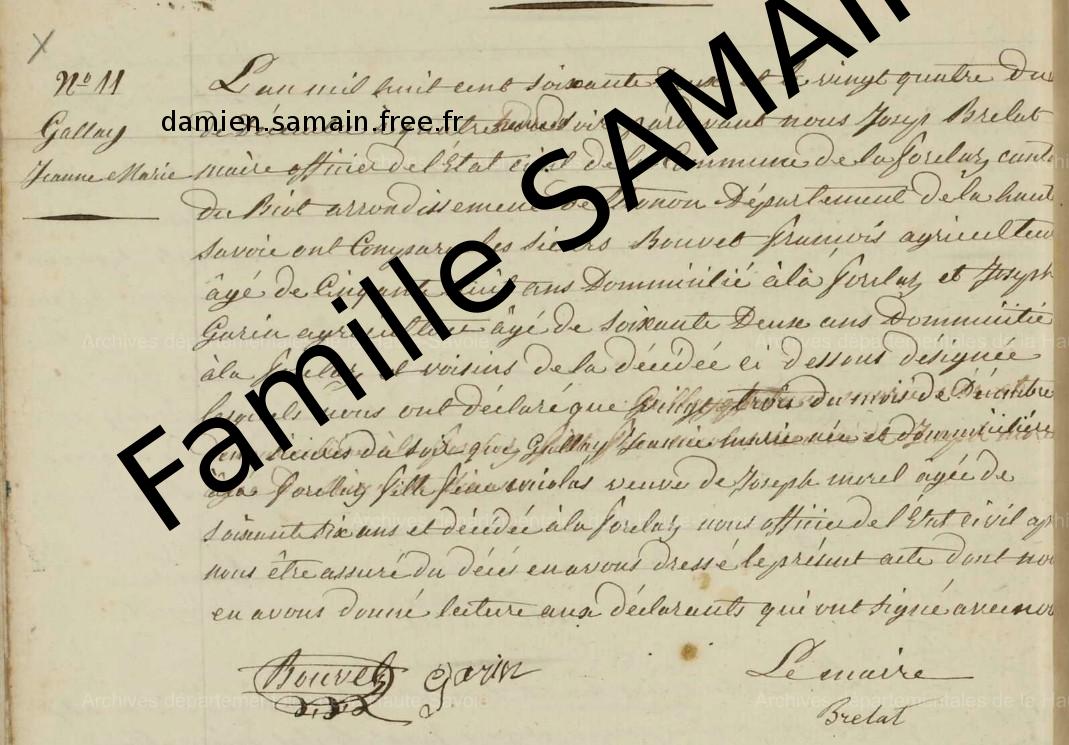 Nº 11
Gallay
Jeanne Marie
L'an mil huit cent soixante deux et le vingt quatre du
mois de Décembre à quatre heures du soir pardevant nous Josep Brelat
maire officier de l'Etat civil de la Commune de la forclaz, canto
du Biot arrondissement de Thonon Département de la haute
savoie ont Comparu les sieurs Bouvet françois agriculteur
âgé de Cinquante huit ans Dommicilié à la forclaz et Joseph
Garin agriculteur âgé de soixante Deux ans Dommicilié
à la forclaz et voisins de la décédée ci dessous designée
lesquels nous ont déclaré que vingt trois du mois de Décembre
heures du soir que Gallay Jeanne marie née et dommiciliée
à la forclaz fille feu nicolas veuve de Joseph morel agée de
soixante six ans et décédée à la forclaz, nous officier de l'Etat civil ap
nous être assuré du décés en avons dressé le présent acte dont no
en avons donné lecture aux déclarants qui ont signé avec nou
Bouvet Garin Le maire
Brelat
damien.samain.free.fr
Famille SAMAIN
Archives départementales de la Haute-Savoie